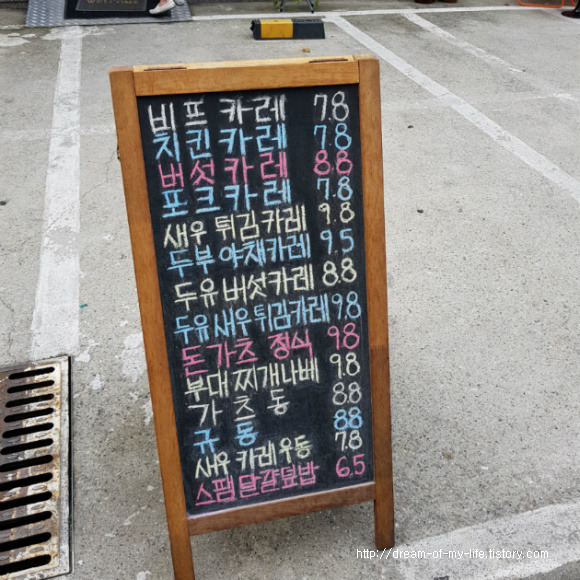 비프 카레 7.8
치킨 카레 7.8
버섯카레 8.8
포크카레 7.8
새우 튀김카레 9.8
두부 야채카레 9.5
두유버섯카레 8.8
두유새우튀김카레 9.8
돈가츠 정식 9.8
부대찌개나베 9.8
가츠동 8.8
규동 8.8
새우카레우동 7.8
스팸달걀덮밥 6.5
http://dream-of-my-life.tistory.com